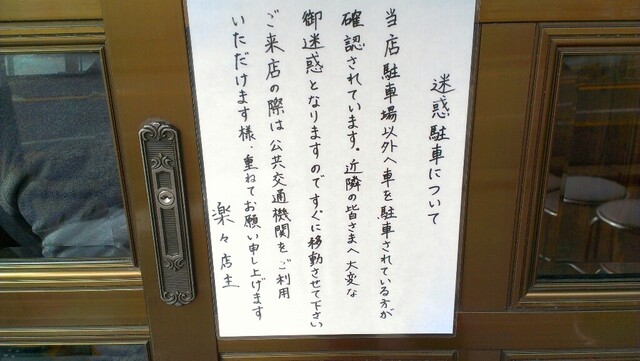 迷惑駐車について
当店駐車場以外へ車を駐車されている方が
確認されています。近隣の皆さまへ大変な
御迷惑となりますのですぐに移動させて下さい
ご来店の際は公共交通機関をご利用
いただけます様、重ねてお願い申し上げます
楽々店主